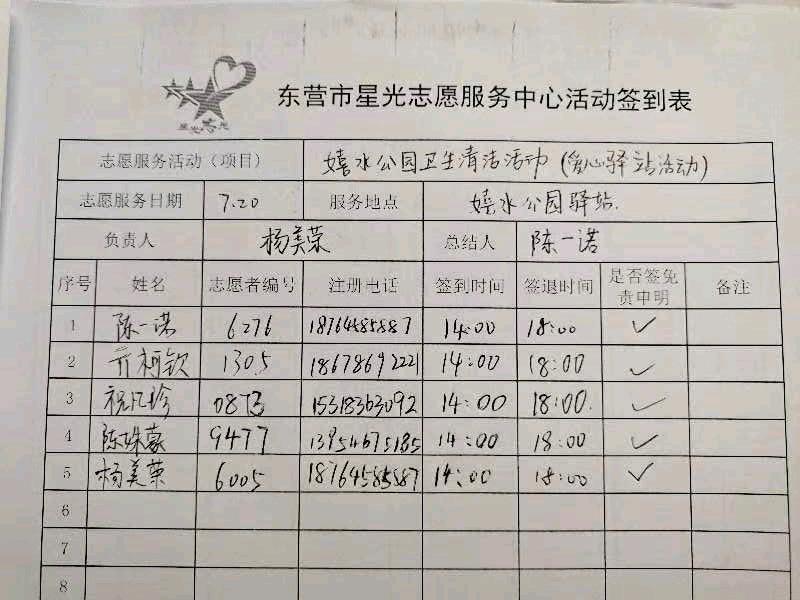 东营市星光志愿服务中心活动签到表
志愿服务活动（项目） 嬉水公园卫生清洁活动（爱心驿站活动）
志愿服务日期 7.20 服务地点 嬉水公园驿站.
负责人 杨美荣 总结人 陈一诺
序号 姓名 志愿者编号 注册电话 签到时间 签退时间 是否签免责申明 备注
1 陈一诺 6276 18764585887 14:00 18:00 ✓
2 亓柯钦 1305 18678692221 14:00 18:00 ✓
3 祝凡珍 15318363092 14:00 18:00. ✓
4 陈姝蒙 9477 13954675185 14:00 18:00 ✓
5 杨美荣 6005 18764585887 14:00 18:00 ✓
6
7
8